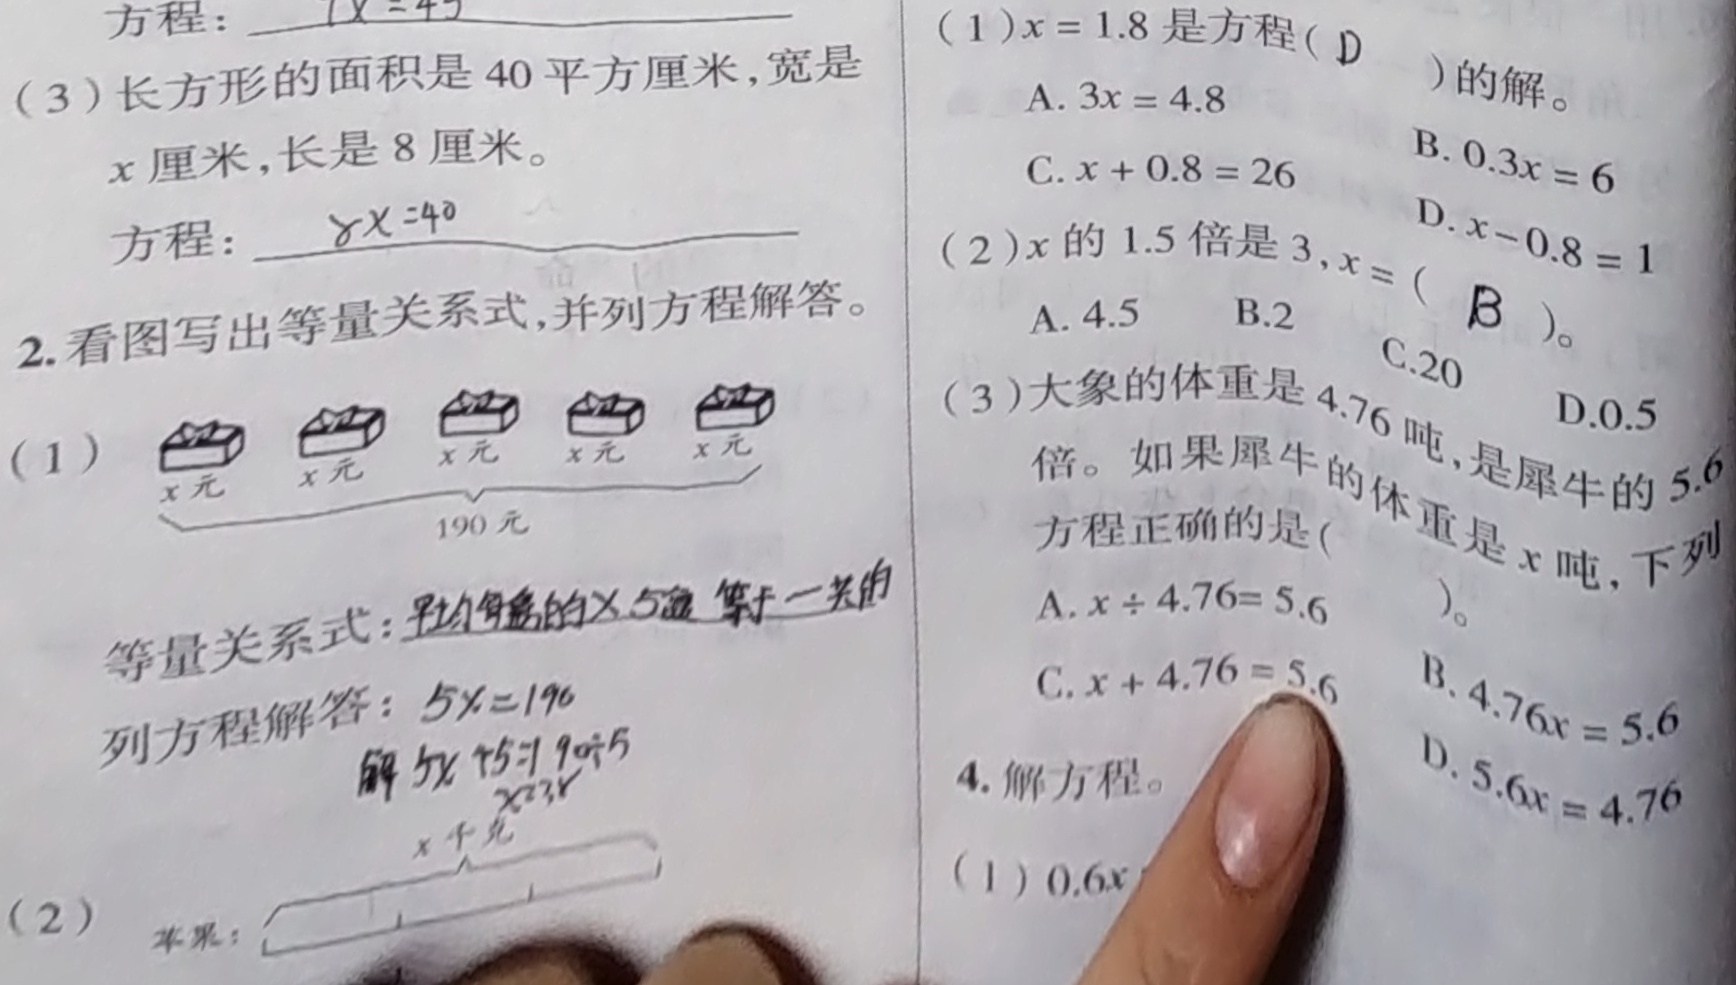 方程：7x=45
(3)长方形的面积是40平方厘米,宽是
x厘米,长是8厘米。
方程：8x=40
2.看图写出等量关系式,并列方程解答。
(1)
x元 x元 x元 x元 x元
190元
等量关系式：平均每盒的×5盒 等于一共的
列方程解答：5x=190
解 5x÷5=190÷5
x=38
x千克
(2) 苹果：
(1)x=1.8是方程( D )的解。
A. 3x=4.8 B. 0.3x=6
C. x+0.8=26 D. x-0.8=1
(2)x的1.5倍是3,x=( B )。
A. 4.5 B.2 C.20 D.0.5
(3)大象的体重是4.76吨,是犀牛的5.6
倍。如果犀牛的体重是x吨,下列
方程正确的是( )。
A. x÷4.76=5.6 B. 4.76x=5.6
C. x+4.76=5.6 D. 5.6x=4.76
4.解方程。
(1)0.6x